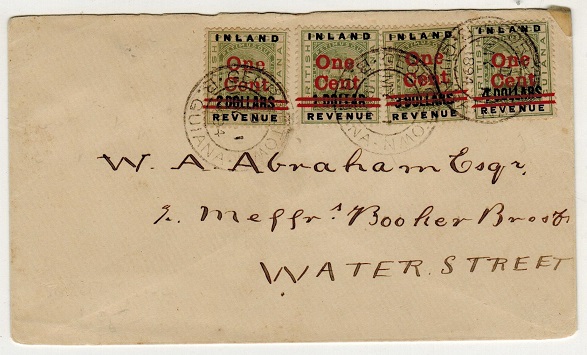 INLAND INLAND INLAND INLAND
One One One One
Cent Cent Cent Cent
2 DOLLARS 1 DOLLAR 3 DOLLARS 4 DOLLARS
REVENUE REVENUE REVENUE REVENUE
W. A. Abraham Esqr,
Meffrs Booker Bros
WATER. STREET